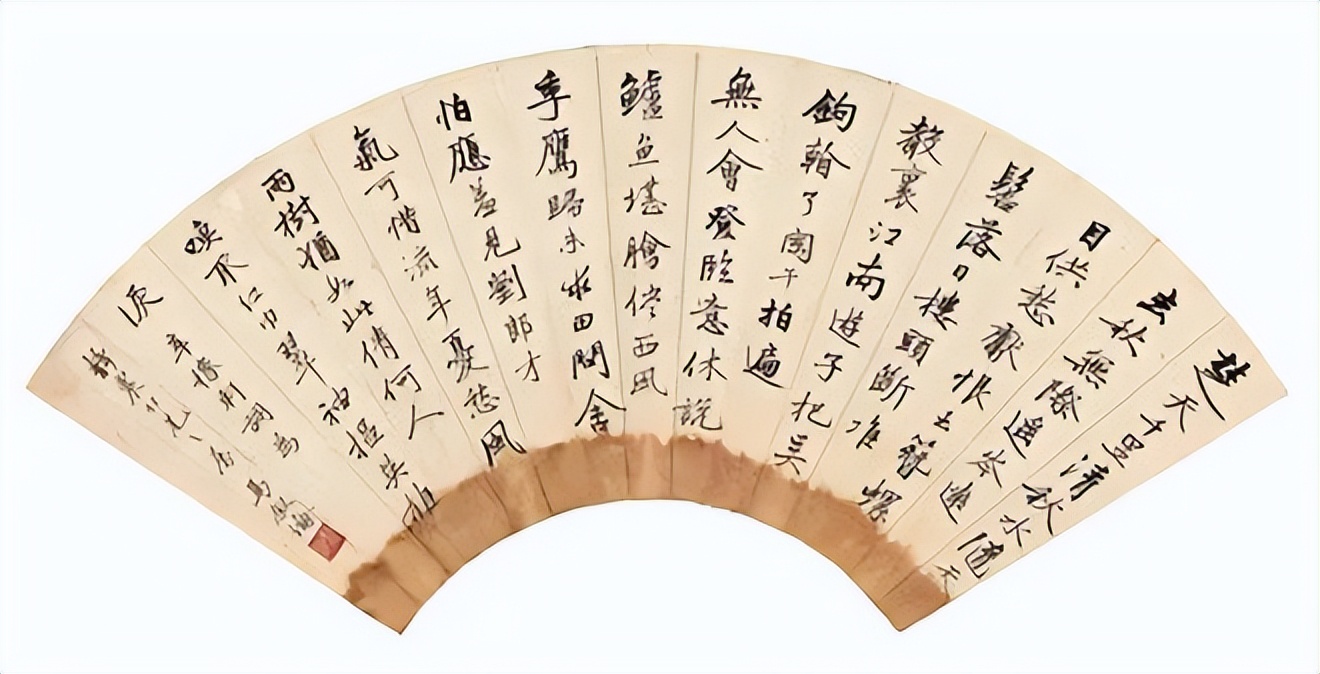 楚天千里清秋水隨天
去秋無際遥岑遠
目供愁獻恨玉簪螺
髻落日樓頭斷
裏江南遊子把吳
鉤看了闌干拍遍
無人會登臨意休說
鱸魚堪膾儘西風
季鷹歸未求田問舍
怕應羞見劉郎才
氣可惜流年憂愁風
雨樹猶如此倩何人
喚取紅巾翠袖搵英雄
淚 辛稼軒詞為
仁兄 馬敘倫